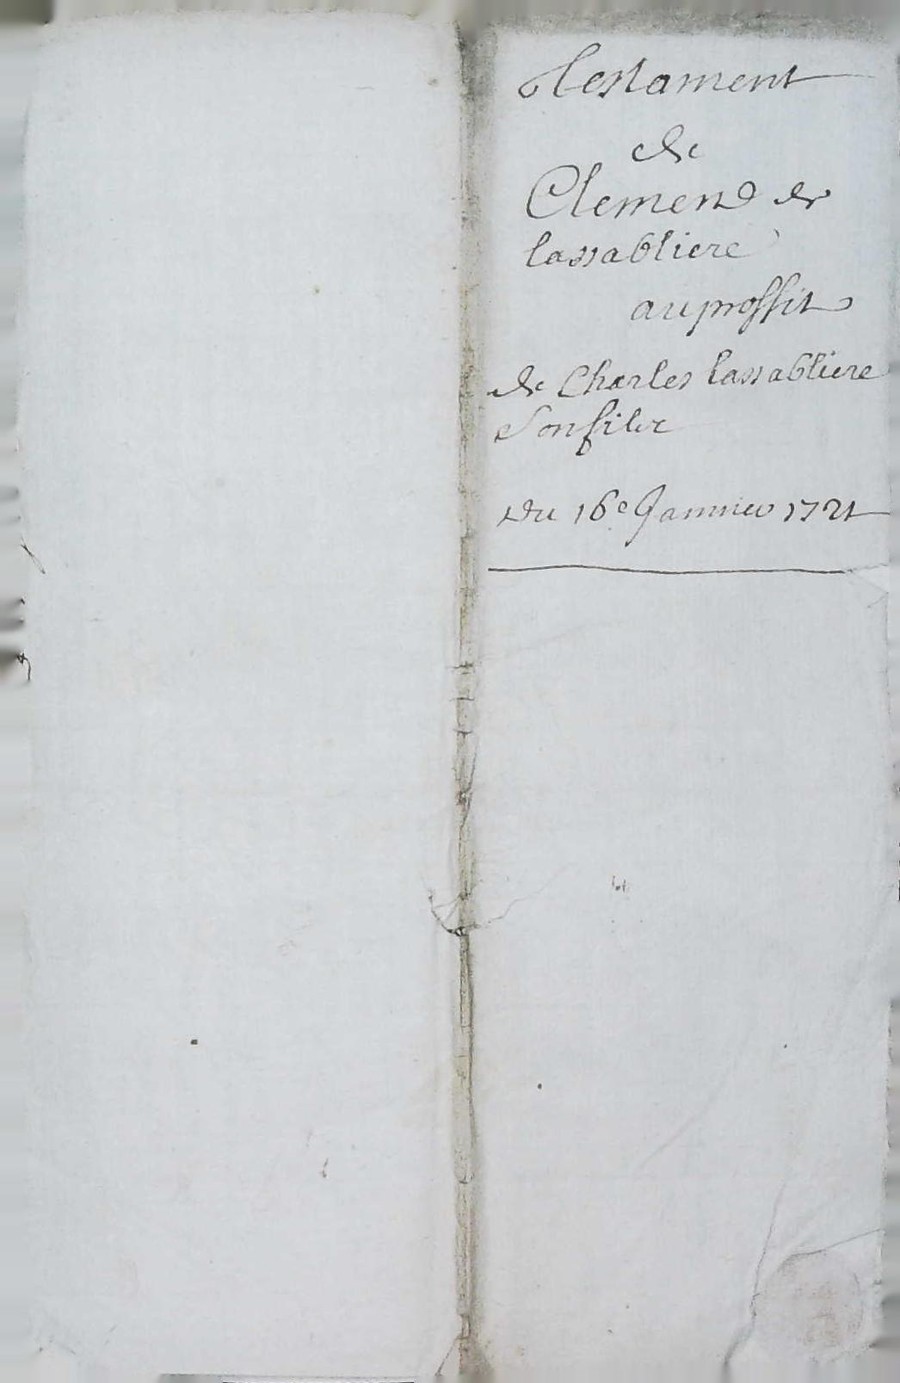 Testament
de
Clemend de
lassabliere
au proffit
de Charles lassabliere
son filz
Du 16e Janvier 1721